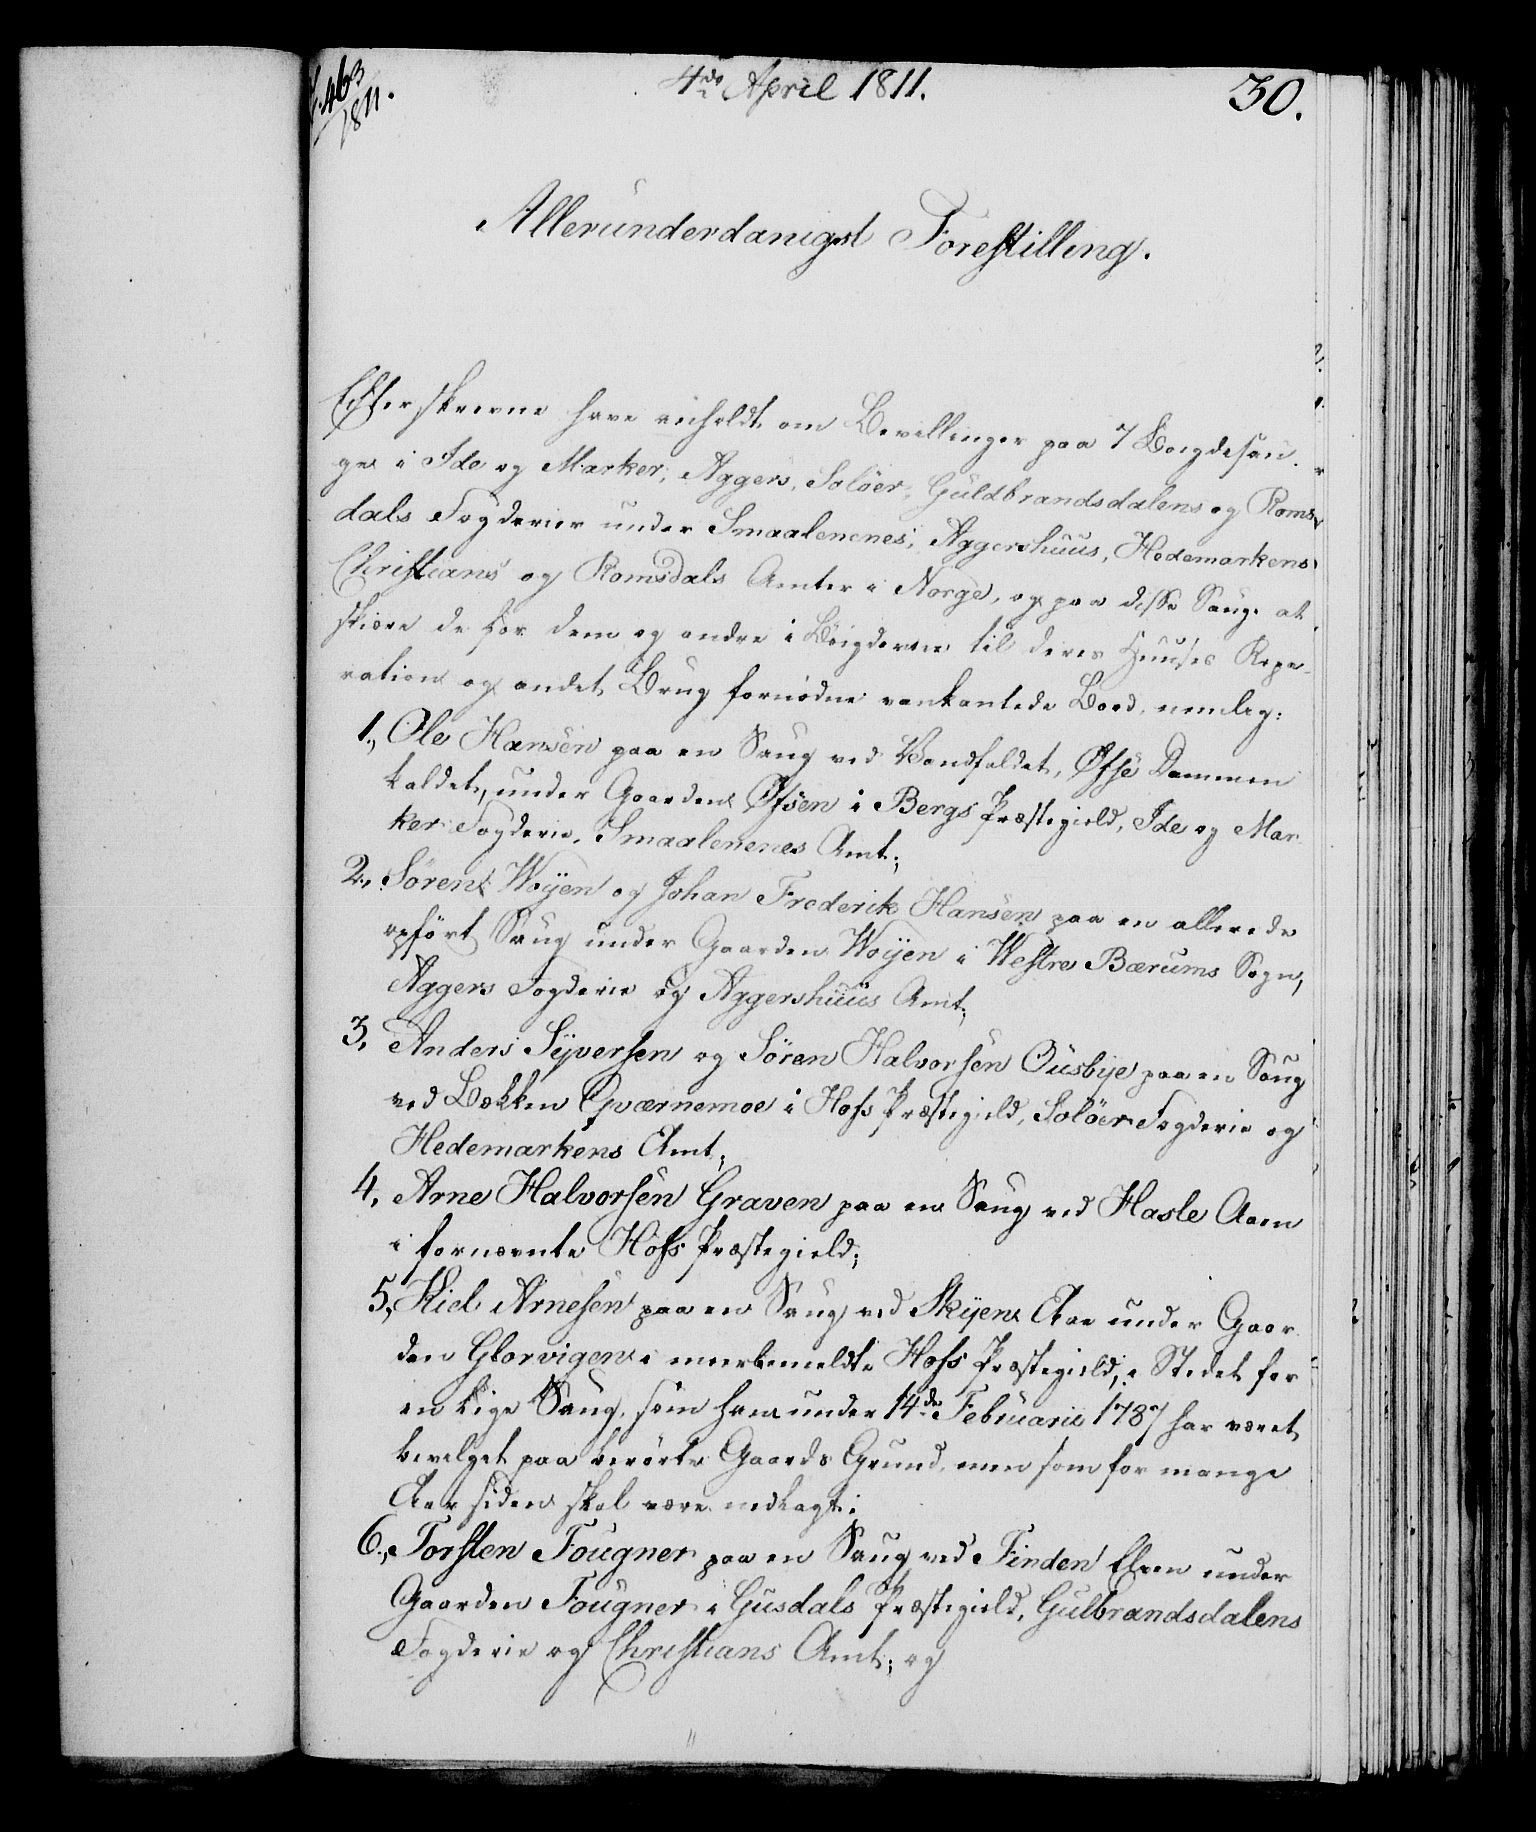 463
1811.
4de April 1811.
30.
Allerunderdanigst Forestilling.
Efterskrevne have anholdt om Bevillinger paa 7 Bøigdesau-
ge i Ide og Marker, Aggers, Soløer, Guldbrandsdalens og Roms-
dals Fogderier under Smaalenenes, Aggershuus, Hedemarkens
Christians og Romsdals Amter i Norge, og paa disse Sauge at
skiære de for dem og andre i Bøigderne til deres Huuses Repa-
ration og andet Brug fornødne vankantede Bord, nemlig:
1., Ole Hansen paa en Saug ved Vandfaldet, Øfse Dammen
kaldet, under Gaarden Øfsen i Bergs Præstegield, Ide og Mar-
ker Fogderie, Smaalenenes Amt;
2., Søren Woyen og Johan Frederik Hansen paa en allerede
opført Saug under Gaarden Woyen i Westre Bærums Sogn,
Aggers Fogderie og Aggershuus Amt;
3, Anders Syversen og Søren Halvorsen Ousbye paa en Saug
ved Bækken Qværnemoe i Hofs Præstegield, Soløer Fogderie og
Hedemarkens Amt;
4, Arne Halvorsen Graven paa en Saug ved Hasle Aaen
i fornævnte Hofs Præstegield;
5, Kiel Arnesen paa en Saug ved Skyen Aae under Gaar-
den Glorvigen i meerbemeldte Hofs Præstegield, i Stedet for
en lige Saug, som ham under 14de Februarii 1787 har været
bevilget paa berørte Gaards Grund, men som for mange
Aar siden skal være nedlagt;
6., Torsten Fougner paa en Saug ved Finden Elven under
Gaarden Fougner i Gusdals Præstegield, Gulbrandsdalens
Fogderie og Christians Amt; og